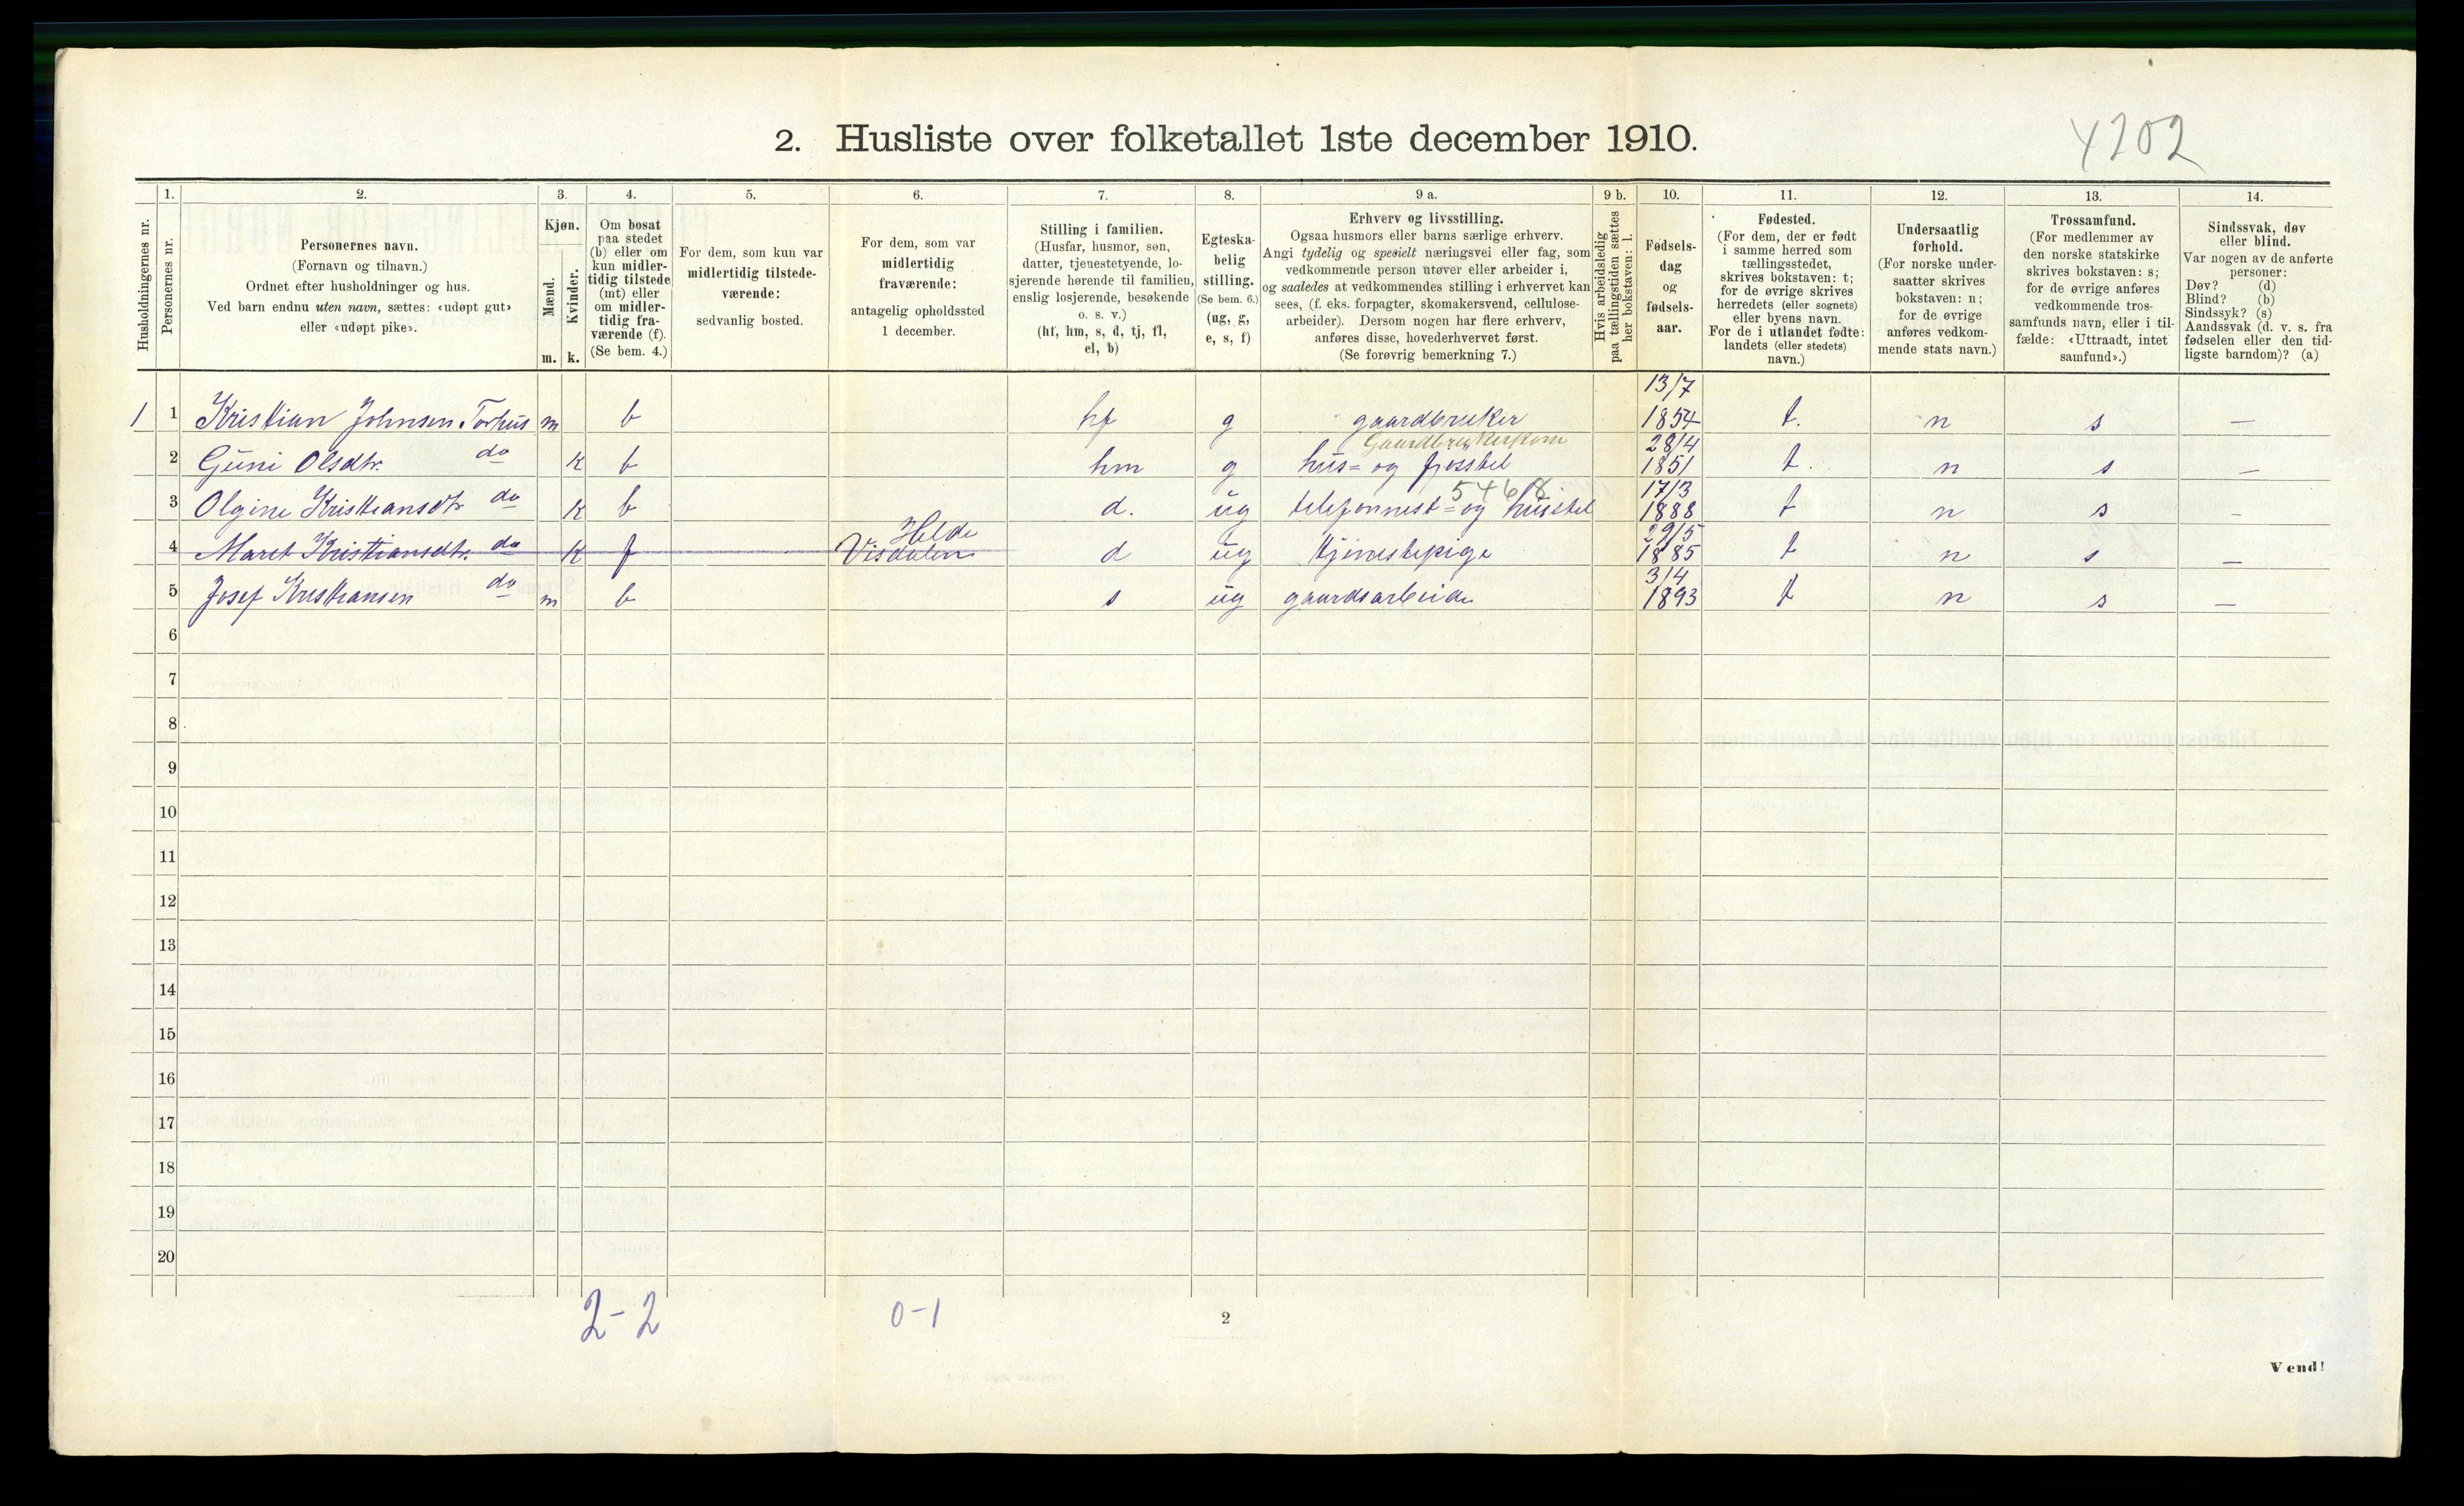 2. Husliste over folketallet 1ste december 1910.
4202
Husholdningernes nr.
1.
Personernes nr.
2.
Personernes navn.
(Fornavn og tilnavn.)
Ordnet efter husholdninger og hus.
Ved barn endnu uten navn, sættes: «udøpt gut»
eller «udøpt pike».
3.
Kjøn.
Mænd.
Kvinder.
m. k.
4.
Om bosat
paa stedet
(b) eller om
kun midler-
tidig tilstede
(mt) eller
om midler-
tidig fra-
værende (f).
(Se bem. 4.)
5.
For dem, som kun var
midlertidig tilstede-
værende:
sedvanlig bosted.
6.
For dem, som var
midlertidig
fraværende:
antagelig opholdssted
1 december.
7.
Stilling i familien.
(Husfar, husmor, søn,
datter, tjenestetyende, lo-
sjerende hørende til familien,
enslig losjerende, besøkende
o. s. v.)
(hf, hm, s, d, tj, fl,
el, b)
8.
Egteska-
belig
stilling.
(Se bem. 6.)
(ug, g,
e, s, f)
9 a.
Erhverv og livsstilling.
Ogsaa husmors eller barns særlige erhverv.
Angi tydelig og spesielt næringsvei eller fag, som
vedkommende person utøver eller arbeider i,
og saaledes at vedkommendes stilling i erhvervet kan
sees, (f. eks. forpagter, skomakersvend, cellulose-
arbeider). Dersom nogen har flere erhverv,
anføres disse, hovederhvervet først.
(Se forøvrig bemerkning 7.)
9 b.
Hvis arbeidsledig
paa tællingstiden sættes
her bokstaven: l.
10.
Fødsels-
dag
og
fødsels-
aar.
11.
Fødested.
(For dem, der er født
i samme herred som
tællingsstedet,
skrives bokstaven: t;
for de øvrige skrives
herredets (eller sognets)
eller byens navn.
For de i utlandet fødte:
landets (eller stedets)
navn.)
12.
Undersaatlig
forhold.
(For norske under-
saatter skrives
bokstaven: n;
for de øvrige
anføres vedkom-
mende stats navn.)
13.
Trossamfund.
(For medlemmer av
den norske statskirke
skrives bokstaven: s;
for de øvrige anføres
vedkommende tros-
samfunds navn, eller i til-
fælde: «Uttraadt, intet
samfund».)
14.
Sindssvak, døv
eller blind.
Var nogen av de anførte
personer:
Døv? (d)
Blind? (b)
Sindssyk? (s)
Aandssvak (d. v. s. fra
fødselen eller den tid-
ligste barndom)? (a)
1 1 Kristian Johnsen Torhus m b hf g gaardbruker 13/7 1854 t. n s —
Gaardbrukerkone
2 Guni Olsdtr. do k b hm g hus= og fjøsstel 28/4 1851 t. n s —
5468
3 Olgine Kristiansdtr do k b d. ug telefonnist= og husstel 17/3 1888 t n s -
Helde
4 Maret Kristiansdtr. do k f Visdalen d ug tjenestepige 29/5 1885 t n s —
5 Josef Kristiansen do m b s ug gaardsarbeide 3/4 1893 t n s —
6
7
8
9
10
11
12
13
14
15
16
17
18
19
20
2-2 0-1
2
Vend!